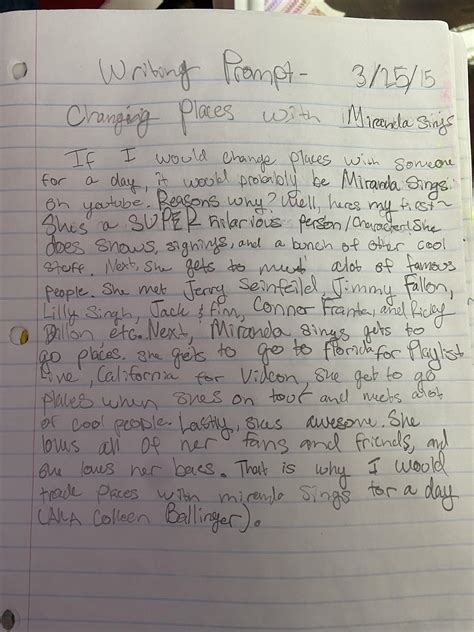 Writing Prompt- 3/25/15
Changing Places with Miranda Sings
If I would change places with someone
for a day, it would probably be Miranda Sings
on youtube. Reasons why? Well, heres my first~
Shes a SUPER hilarious person/character! She
does shows, signings, and a bunch of other cool
stuff. Next, she gets to meet alot of famous
people. She met Jerry Seinfeild, Jimmy Fallon,
Lilly Singh, Jack & Finn, Connor Franta, and Ricky
Dillon, etc. Next, Miranda Sings gets to
go places, she gets to go to florida for Playlist
Live, California for Vidcon, she get to go
places when shes on tour and meets alot
of cool people. Lastly, shes awesome. She
loves all of her fans and friends, and
she loves her baes. That is why I would
trade places with miranda sings for a day
(AKA Colleen Ballinger).